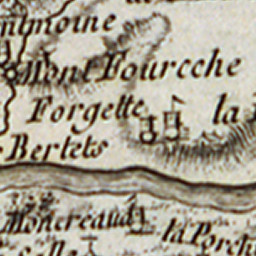 Mont Fourcche
Forgette
la
Bertets
Moncreaud
la Porch